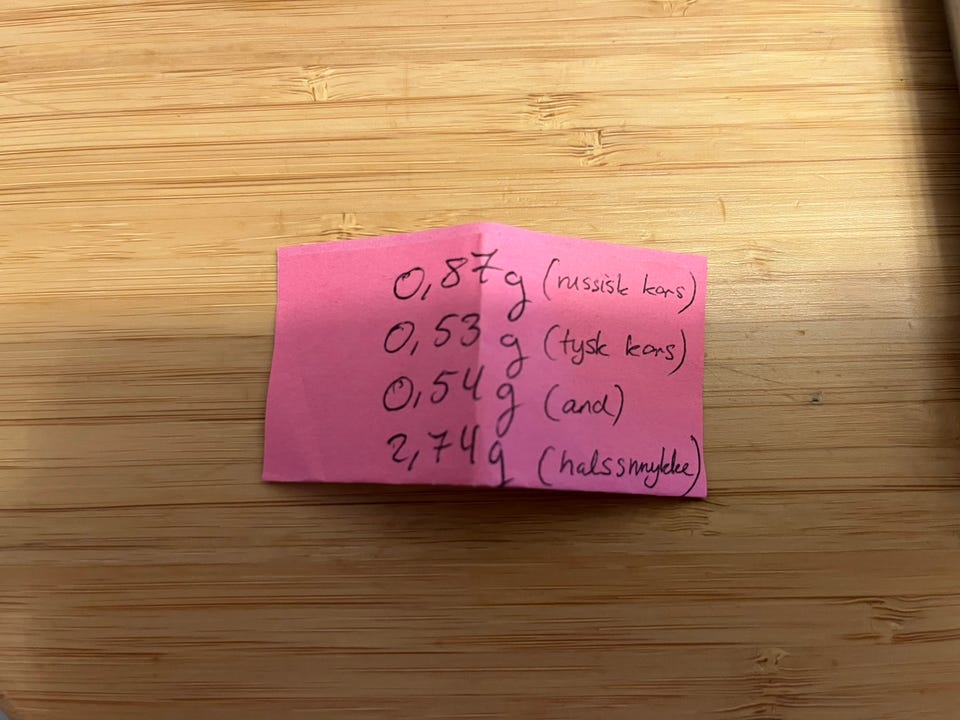 0,87 g (russisk kors)
0,53 g (tysk kors)
0,54 g (and)
2,74 g (halssmykke)